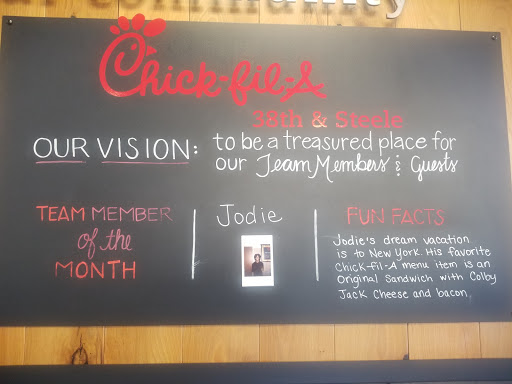 community
Chick-fil-A
38th & Steele
OUR VISION: to be a treasured place for
our Team Members & Guests
TEAM MEMBER
of the
MONTH
Jodie
FUN FACTS
Jodie's dream vacation
is to New York. His favorite
Chick-fil-A menu item is an
Original Sandwich with Colby
Jack Cheese and bacon.